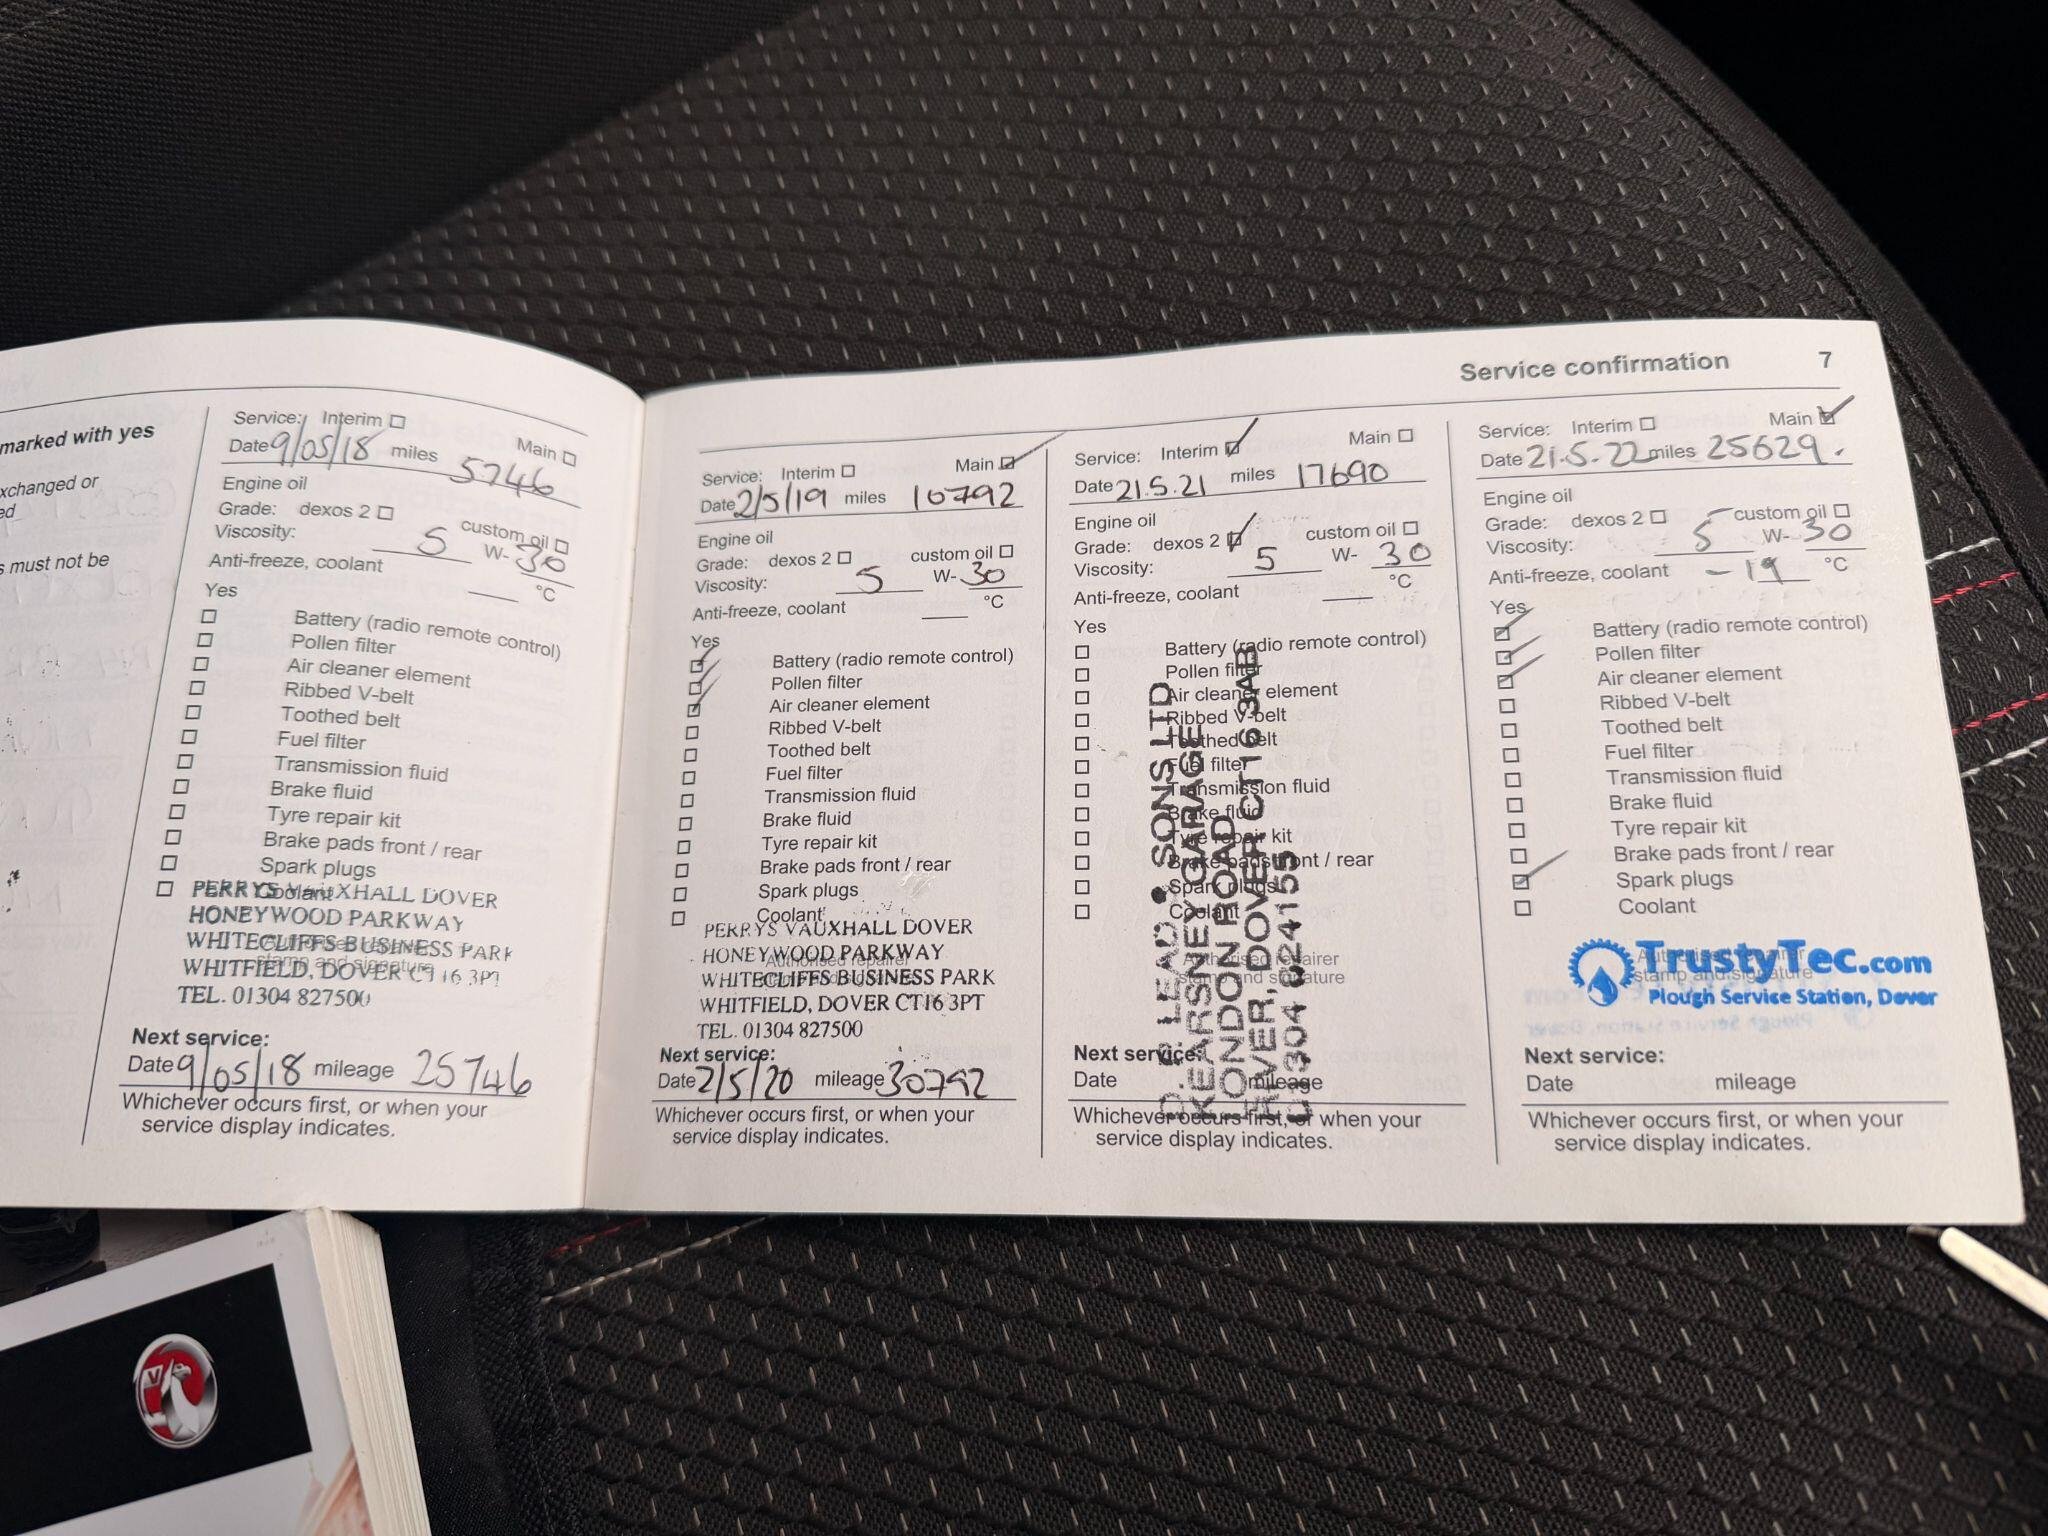 marked with yes
xchanged or
ed
s must not be
Service: Interim Main
Date 9/05/18 miles 5746
Engine oil
Grade: dexos 2 custom oil
Viscosity: 5 W-30
Anti-freeze, coolant °C
Yes
Battery (radio remote control)
Pollen filter
Air cleaner element
Ribbed V-belt
Toothed belt
Fuel filter
Transmission fluid
Brake fluid
Tyre repair kit
Brake pads front / rear
Spark plugs
Coolant
PERRYS VAUXHALL DOVER
HONEYWOOD PARKWAY
WHITECLIFFS BUSINESS PARK
Authorised repairer
stamp and signature
WHITFIELD, DOVER CT16 3PT
TEL. 01304 827500
Next service:
Date 9/05/18 mileage 25746
Whichever occurs first, or when your
service display indicates.
Service confirmation 7
Service: Interim Main
Date 2/5/19 miles 10792
Engine oil
Grade: dexos 2 custom oil
Viscosity: 5 W-30
Anti-freeze, coolant °C
Yes
Battery (radio remote control)
Pollen filter
Air cleaner element
Ribbed V-belt
Toothed belt
Fuel filter
Transmission fluid
Brake fluid
Tyre repair kit
Brake pads front / rear
Spark plugs
Coolant
PERRYS VAUXHALL DOVER
HONEYWOOD PARKWAY
Authorised repairer
WHITECLIFFS BUSINESS PARK
stamp and signature
WHITFIELD, DOVER CT16 3PT
TEL. 01304 827500
Next service:
Date 2/5/20 mileage 30792
Whichever occurs first, or when your
service display indicates.
Service: Interim Main
Date 21.5.21 miles 17690
Engine oil
Grade: dexos 2 custom oil
Viscosity: 5 W-30
Anti-freeze, coolant °C
Yes
Battery (radio remote control)
Pollen filter
Air cleaner element
Ribbed V-belt
Toothed belt
Fuel filter
Transmission fluid
Brake fluid
Tyre repair kit
Brake pads front / rear
Spark plugs
Coolant
Authorised repairer
stamp and signature
LEAD • SONS LTD
KEARSNEY GARAGE
LONDON ROAD
RIVER, DOVER CT16 3AB
01304 824155
Next service:
Date mileage
Whichever occurs first, or when your
service display indicates.
Service: Interim Main
Date 21.5.22 miles 25629.
Engine oil
Grade: dexos 2 custom oil
Viscosity: 5 W-30
Anti-freeze, coolant -19 °C
Yes
Battery (radio remote control)
Pollen filter
Air cleaner element
Ribbed V-belt
Toothed belt
Fuel filter
Transmission fluid
Brake fluid
Tyre repair kit
Brake pads front / rear
Spark plugs
Coolant
Authorised repairer
stamp and signature
TrustyTec.com
Plough Service Station, Dover
Next service:
Date mileage
Whichever occurs first, or when your
service display indicates.